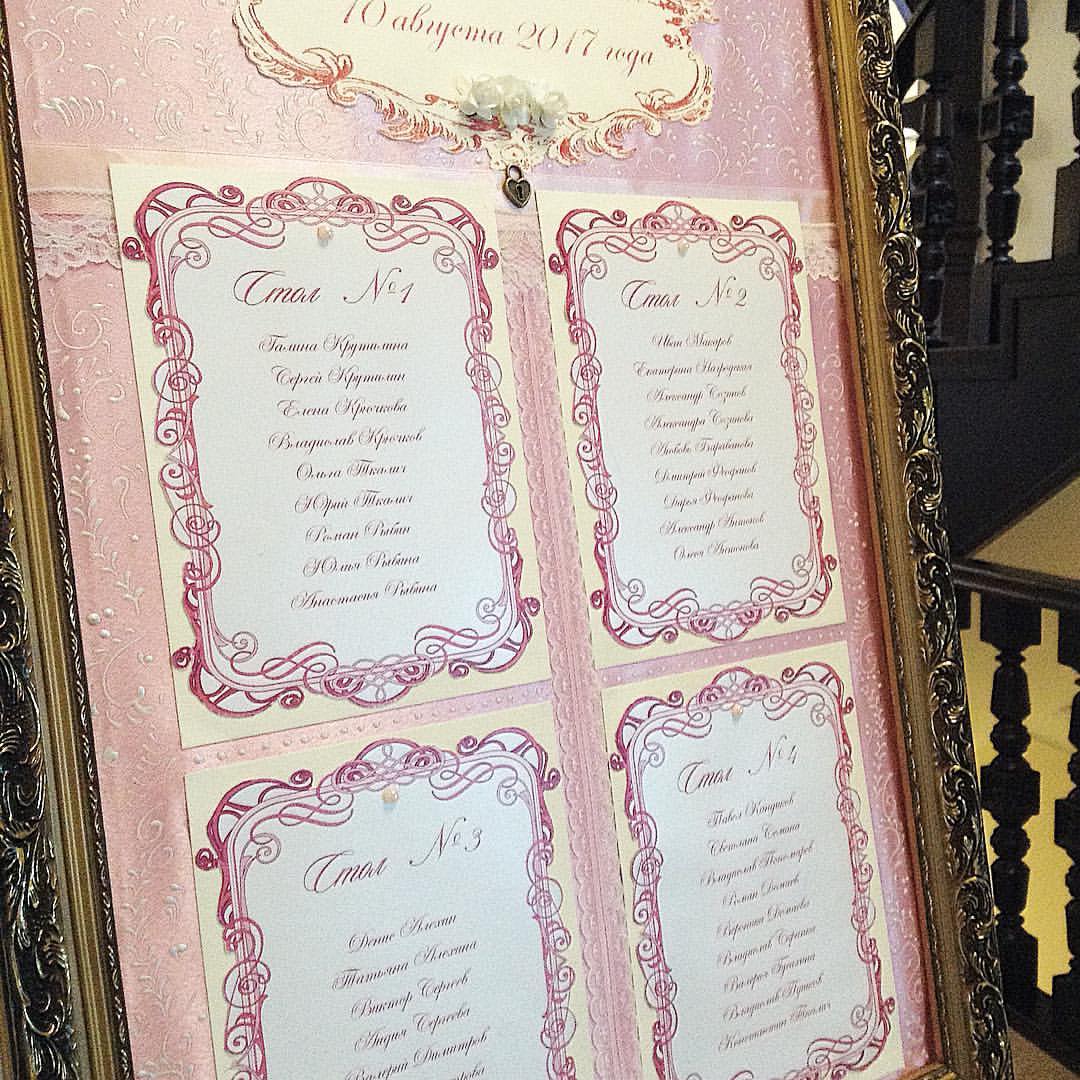 10 августа 2017 года
Стол №1
Галина Крутилина
Сергей Крутилин
Елена Крючкова
Владислав Крючков
Ольга Ткалич
Юрий Ткалич
Роман Рябин
Юлия Рябина
Анастасия Рябина
Стол №2
Иван Макаров
Екатерина Нагродская
Александр Созинов
Александра Созинова
Любовь Барабанова
Дмитрий Феофанов
Дарья Феофанова
Александр Антонов
Олеся Антонова
Стол №3
Денис Алехин
Татьяна Алехина
Виктор Сергеев
Лидия Сергеева
Валерий Димитров
Стол №4
Павел
Светлана Семина
Владислав Пономарев
Роман Дюпаев
Вероника
Владислав
Валерия
Владислав
Константин Ткалич